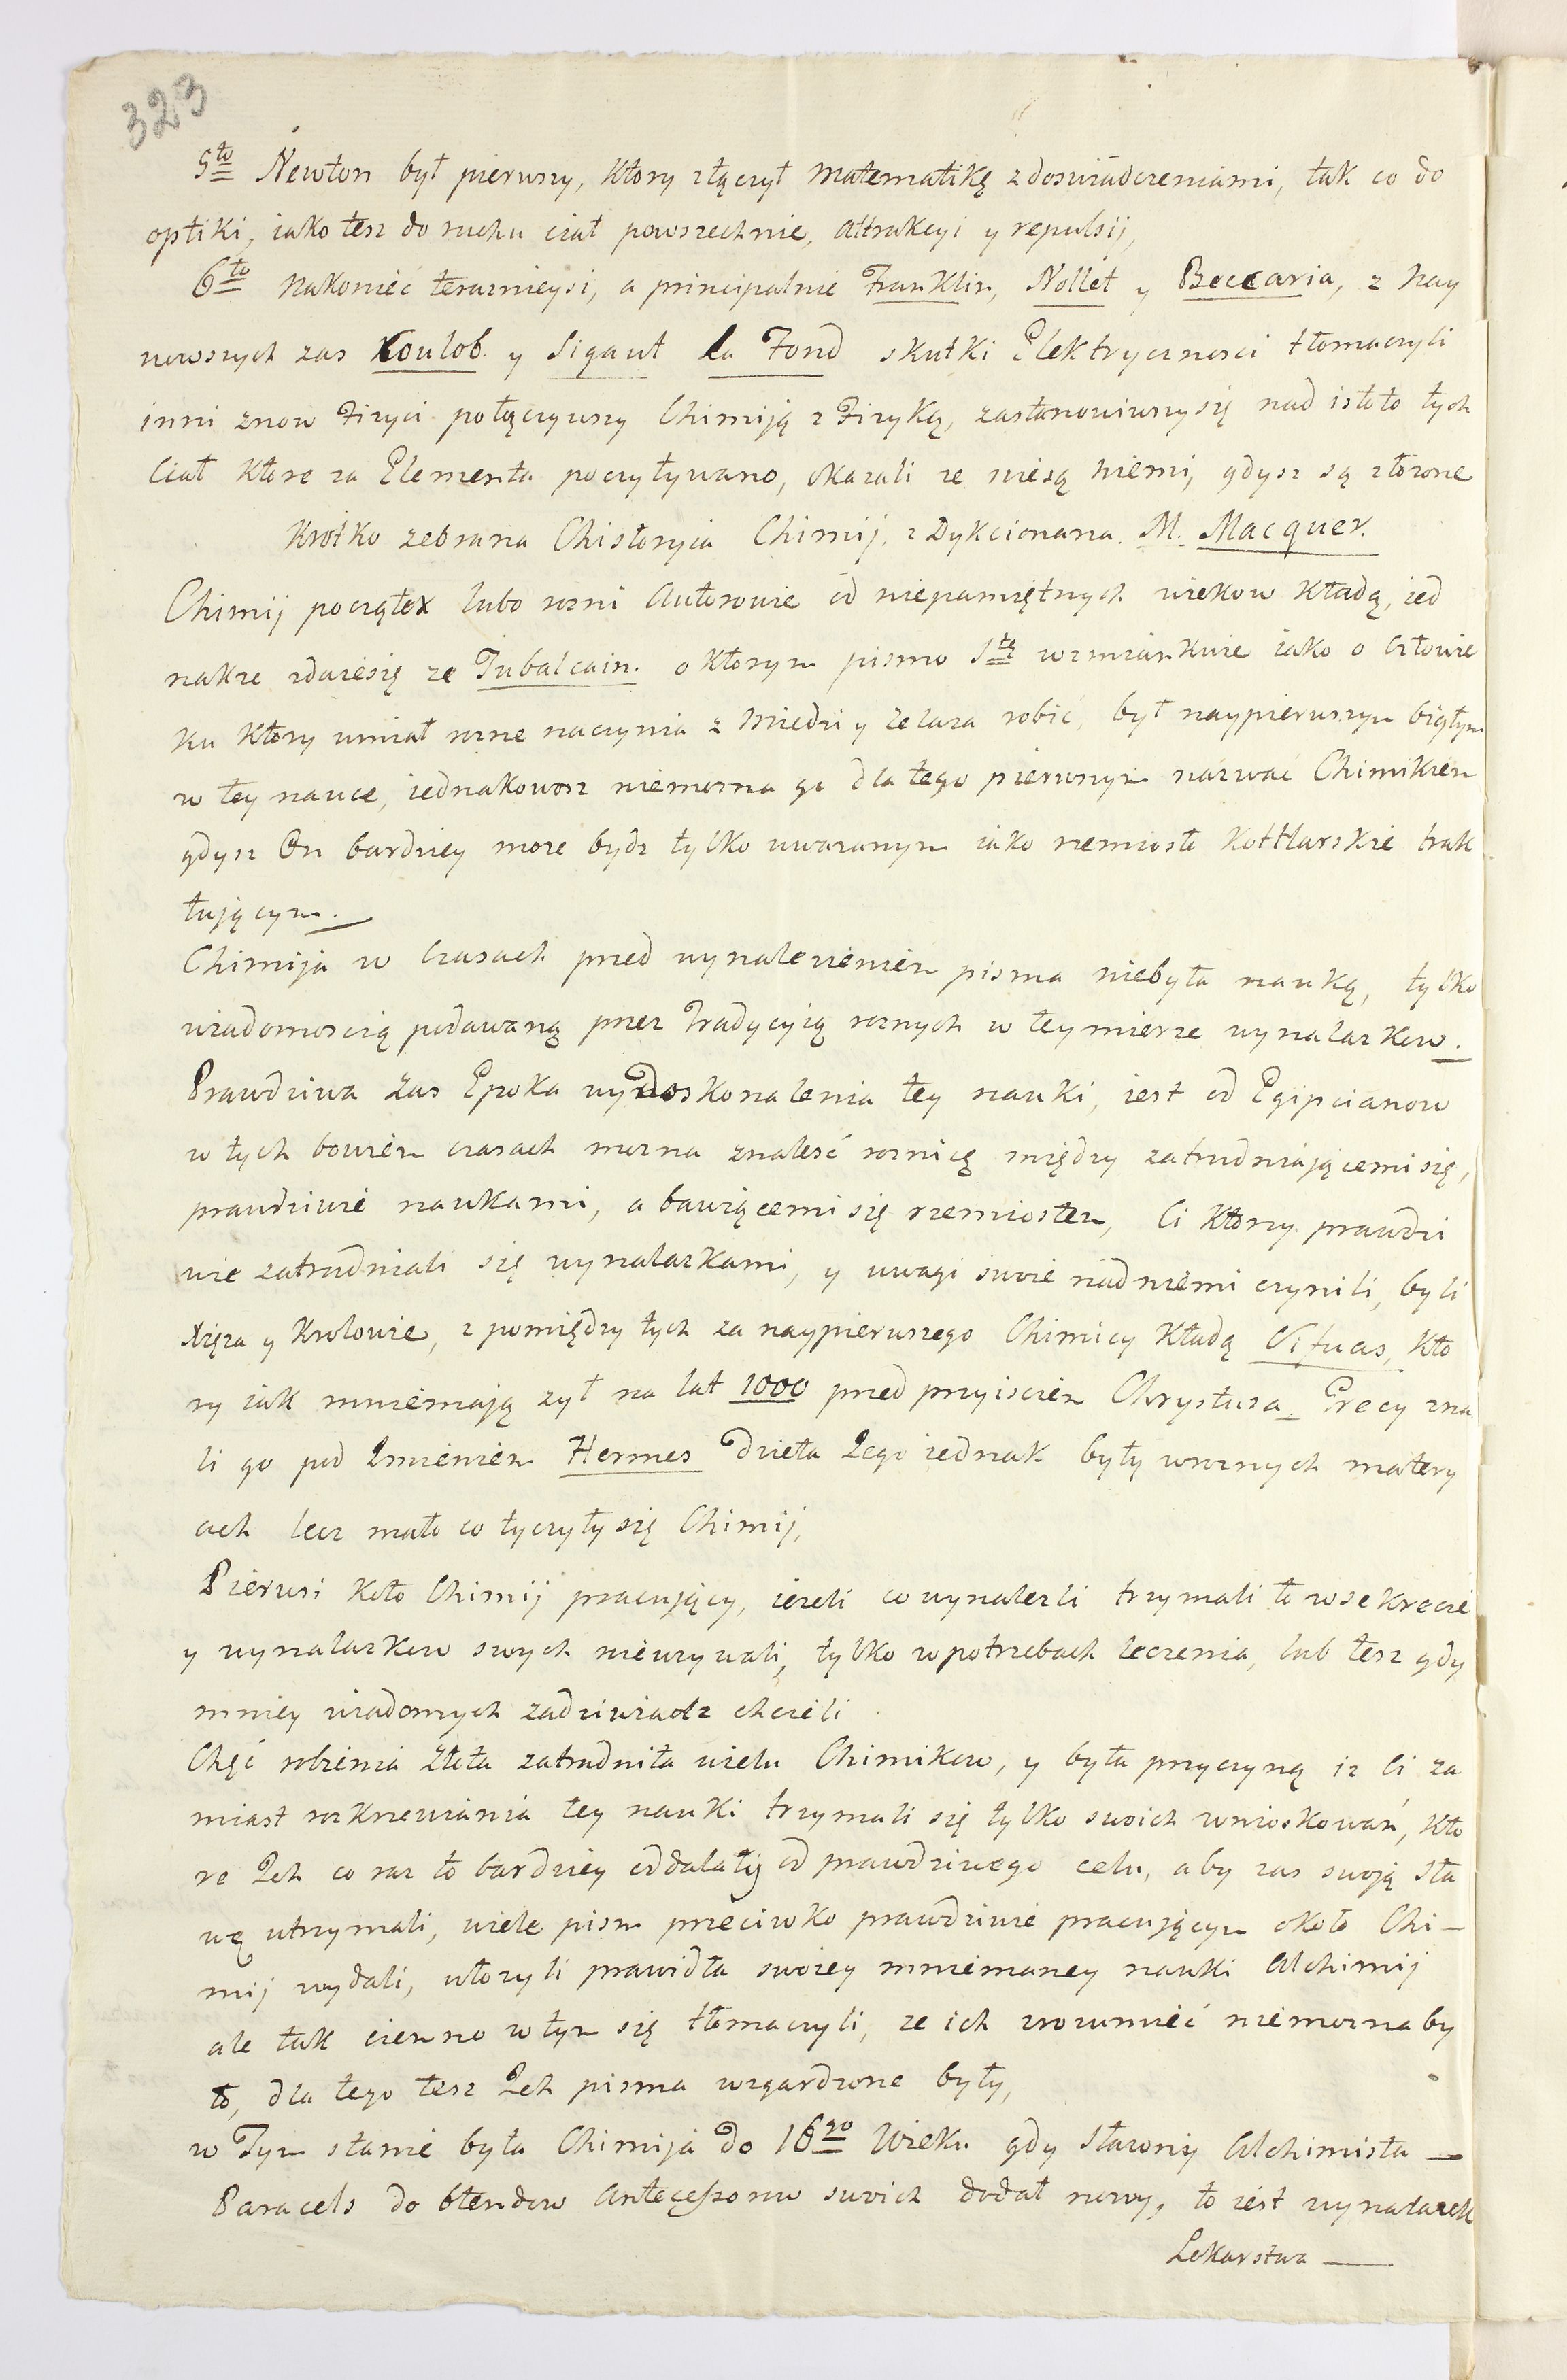 323
5to Newton był pierwszy, ktory złączył Matematikę z doswiadczeniami, tak co do
optiki, iako tesz do ruchu ciał powszechnie, attrakcyi y repulsij,
6to Nakoniec teraznieysi, a principalnie Franklin, Nollet y Beccaria, z Nay
nowszych zas Koulob. y Sigaut la Fond skutki Elektrycznosci tłomaczyli
inni znow Fizyci połączywszy Chimiją z Fizyką, zastanowiwszy się nad istoto tych
Ciał ktore za Elementa poczytywano, okazali ze niesą niemi, gdysz są złozone
Krotko zebrana Chistoryia Chimij, z Dykcionara. M. Macquer.
Chimij początek lubo rozni Autorowie od niepamiętnych wiekow kładą, ied
nakze zdaiesię ze Tubalcain. o ktorym pismo Ste wzmiankuie iako o Człowie
ku ktory umiał rozne naczynia z Miedzi y Zelaza robić, był naypierwszym biegłym
w tey nauce, iednakowosz niemozna go dla tego pierwszym nazwać Chimikiem
gdysz On bardziey moze bydz tylko uwazanym iako rzemiosło kottlarskie trak
tującym.
Chimija w Czasach przed wynalezieniem pisma niebyła nauką, tylko
wiadomoscią podawaną przez Tradycyią roznych w teymierze wynalazkow.
Prawdziwa Zas Epoka wydoskonalenia tey nauki, iest od Egipcianow
w tych bowiem czasach mozna znalesć roznicę między zatrudniającemi się,
prawdziwie naukami, a bawiącemi się rzemiosłem, Ci ktorzy prawdzi
wie zatrudniali się wynalazkami, y uwagi swoie nadniemi czynili, byli
Xięza y Krolowie, z pomiędzy tych za naypierwszego Chimicy kładą Cifuas, kto
ry iak mniemają zył na lat 1000 przed przyisciem Chrystusa. Grecy zna
li go pod Imieniem Hermes Dzieła Iego iednak były wroznych matery
ach lecz mało co tyczyły się Chimij,
Pierwsi koło Chimij pracujący, iezeli co wynalezli trzymali to wsekrecie
y wynalazkow swych nieuzywali, tylko wpotrzebach leczenia, lub tesz gdy
mniey wiadomych zadziwiadz chcieli
Chęć robienia Złota zatrudniła wielu Chimikow, y była przyczyną iz Ci za
miast rozkrzewiania tey nauki trzymali się tylko swoich wnioskowań, kto
re Ich co raz to bardziey oddalały od prawdziwego celu, aby zas swoją Sła
wę utrzymali, wiele pism przeciwko prawdziwie pracującym około Chi-
mij wydali, ułozyli prawidła swoiey mniemaney nauki Alchimij
ale tak ciemno wtym się tłomaczyli, ze ich zrozumieć niemoznaby
ło, dla tego tesz Ich pisma wzgardzone były,
w Tym stanie była Chimija do 16go Wieku gdy sławny Alchimista —
Paracels do błendow Antecessorow swoich dodał nowy, to iest wynalazek
Lekarstwa —